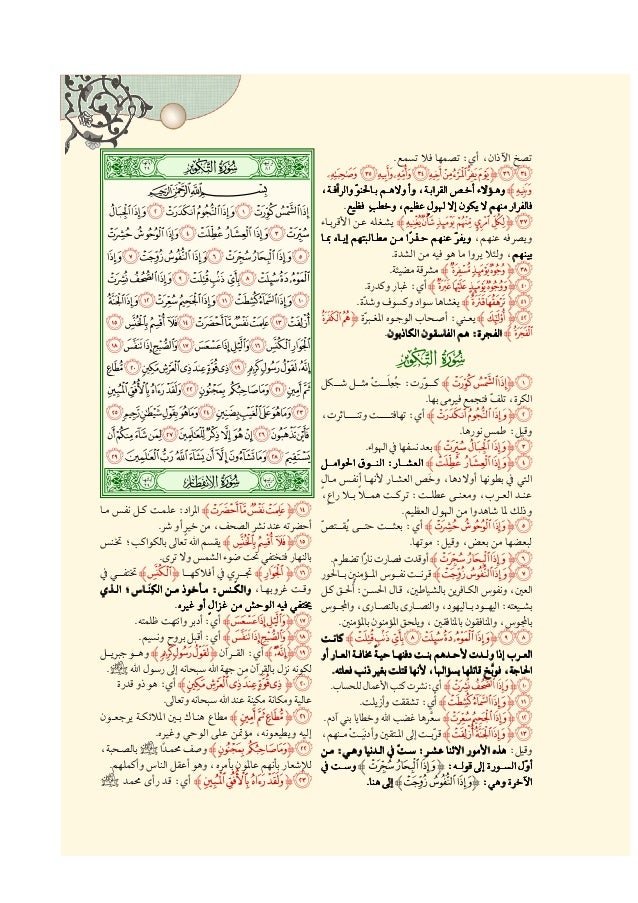 تصخ الآذان، أي: تصمها فلا تسمع.
﴿٣٤﴾﴿٣٥﴾﴿٣٦﴾ ﴿يَوْمَ يَفِرُّ ٱلْمَرْءُ مِنْ أَخِيهِ ٣٤ وَأُمِّهِۦ وَأَبِيهِ ٣٥ وَصَٰحِبَتِهِۦ
وَبَنِيهِ﴾ وهؤلاء أخص القرابة، وأولاهم بالحنوّ والرأفة،
فالفرار منهم لا يكون إلا لهول عظيم، وخطبٍ فظيع.
﴿٣٧﴾ ﴿لِكُلِّ ٱمْرِئٍ مِّنْهُمْ يَوْمَئِذٍ شَأْنٌ يُغْنِيهِ﴾ يشغله عن الأقرباء
ويصرفه عنهم، ويفرّ عنهم حذرًا من مطالبتهم إياه بما
بينهم، ولئلا يروا ما هو فيه من الشدة.
﴿٣٨﴾ ﴿وُجُوهٌ يَوْمَئِذٍ مُّسْفِرَةٌ﴾ مشرقة مضيئة.
﴿٤٠﴾ ﴿وَوُجُوهٌ يَوْمَئِذٍ عَلَيْهَا غَبَرَةٌ﴾ أي: غبار وكدرة.
﴿٤١﴾ ﴿تَرْهَقُهَا قَتَرَةٌ﴾ يغشاها سواد وكسوف وشدّة.
﴿٤٢﴾ ﴿أُو۟لَٰٓئِكَ﴾ يعني: أصحاب الوجوه المغبرّة ﴿هُمُ ٱلْكَفَرَةُ
ٱلْفَجَرَةُ﴾ الفجرة: هم الفاسقون الكاذبون.
سُورَةُ التَّكْوِيرِ
﴿١﴾ ﴿إِذَا ٱلشَّمْسُ كُوِّرَتْ﴾ كوّرت: جُعِلَتْ مثل شكل
الكرة، تلفّ فتجمع فيرمى بها.
﴿٢﴾ ﴿وَإِذَا ٱلنُّجُومُ ٱنكَدَرَتْ﴾ أي: تهافتت وتناثرت،
وقيل: طمس نورها.
﴿٣﴾ ﴿وَإِذَا ٱلْجِبَالُ سُيِّرَتْ﴾ بعد نسفها في الهواء.
﴿٤﴾ ﴿وَإِذَا ٱلْعِشَارُ عُطِّلَتْ﴾ العشار: النوق الحوامل
التي في بطونها أولادها، وخص العشار لأنها أنفس مال
عند العرب، ومعنى عطلت: تركت هملاً بلا راعٍ،
وذلك لما شاهدوا من الهول العظيم.
﴿٥﴾ ﴿وَإِذَا ٱلْوُحُوشُ حُشِرَتْ﴾ أي: بعثت حتى يُقتصّ
لبعضها من بعض، وقيل: موتها.
﴿٦﴾ ﴿وَإِذَا ٱلْبِحَارُ سُجِّرَتْ﴾ أوقدت فصارت نارًا تضطرم.
﴿٧﴾ ﴿وَإِذَا ٱلنُّفُوسُ زُوِّجَتْ﴾ قرنت نفوس المؤمنين بالحور
العين، ونفوس الكافرين بالشياطين، قال الحسن: أُلحق كل
بشيعته: اليهود باليهود، والنصارى بالنصارى، والمجوس
بالمجوس، والمنافقون بالمنافقين، ويلحق المؤمنون بالمؤمنين.
﴿٨﴾﴿٩﴾ ﴿وَإِذَا ٱلْمَوْءُۥدَةُ سُئِلَتْ ٨ بِأَىِّ ذَنۢبٍ قُتِلَتْ﴾ كانت
العرب إذا ولدت لأحدهم بنت دفنها حية مخافة العار أو
الحاجة، فوبَّخ قاتلها بسؤالها، لأنها قتلت بغير ذنب فعلته.
﴿١٠﴾ ﴿وَإِذَا ٱلصُّحُفُ نُشِرَتْ﴾ أي: نشرت كتب الأعمال للحساب.
﴿١١﴾ ﴿وَإِذَا ٱلسَّمَآءُ كُشِطَتْ﴾ أي: تشققت وأزيلت.
﴿١٢﴾ ﴿وَإِذَا ٱلْجَحِيمُ سُعِّرَتْ﴾ سعّرها غضب الله وخطايا بني آدم.
﴿١٣﴾ ﴿وَإِذَا ٱلْجَنَّةُ أُزْلِفَتْ﴾ قرّبت إلى المتقين وأدنيت منهم،
وقيل: هذه الأمور الاثنا عشر: ستٌّ في الدنيا وهي: من
أوّل السورة إلى قوله: ﴿وَإِذَا ٱلْبِحَارُ سُجِّرَتْ﴾ وست في
الآخرة وهي: ﴿وَإِذَا ٱلنُّفُوسُ زُوِّجَتْ﴾ إلى هنا.
سُورَةُ التَّكْوِيرِ
بِسْمِ ٱللَّهِ ٱلرَّحْمَٰنِ ٱلرَّحِيمِ
إِذَا ٱلشَّمْسُ كُوِّرَتْ ١ وَإِذَا ٱلنُّجُومُ ٱنكَدَرَتْ ٢ وَإِذَا ٱلْجِبَالُ
سُيِّرَتْ ٣ وَإِذَا ٱلْعِشَارُ عُطِّلَتْ ٤ وَإِذَا ٱلْوُحُوشُ حُشِرَتْ
٥ وَإِذَا ٱلْبِحَارُ سُجِّرَتْ ٦ وَإِذَا ٱلنُّفُوسُ زُوِّجَتْ ٧ وَإِذَا
ٱلْمَوْءُۥدَةُ سُئِلَتْ ٨ بِأَىِّ ذَنۢبٍ قُتِلَتْ ٩ وَإِذَا ٱلصُّحُفُ نُشِرَتْ
١٠ وَإِذَا ٱلسَّمَآءُ كُشِطَتْ ١١ وَإِذَا ٱلْجَحِيمُ سُعِّرَتْ ١٢ وَإِذَا ٱلْجَنَّةُ
أُزْلِفَتْ ١٣ عَلِمَتْ نَفْسٌ مَّآ أَحْضَرَتْ ١٤ فَلَآ أُقْسِمُ بِٱلْخُنَّسِ ١٥
ٱلْجَوَارِ ٱلْكُنَّسِ ١٦ وَٱلَّيْلِ إِذَا عَسْعَسَ ١٧ وَٱلصُّبْحِ إِذَا تَنَفَّسَ ١٨
إِنَّهُۥ لَقَوْلُ رَسُولٍ كَرِيمٍ ١٩ ذِى قُوَّةٍ عِندَ ذِى ٱلْعَرْشِ مَكِينٍ ٢٠ مُّطَاعٍ
ثَمَّ أَمِينٍ ٢١ وَمَا صَاحِبُكُم بِمَجْنُونٍ ٢٢ وَلَقَدْ رَءَاهُ بِٱلْأُفُقِ ٱلْمُبِينِ
٢٣ وَمَا هُوَ عَلَى ٱلْغَيْبِ بِضَنِينٍ ٢٤ وَمَا هُوَ بِقَوْلِ شَيْطَٰنٍ رَّجِيمٍ ٢٥
فَأَيْنَ تَذْهَبُونَ ٢٦ إِنْ هُوَ إِلَّا ذِكْرٌ لِّلْعَٰلَمِينَ ٢٧ لِمَن شَآءَ مِنكُمْ أَن
يَسْتَقِيمَ ٢٨ وَمَا تَشَآءُونَ إِلَّآ أَن يَشَآءَ ٱللَّهُ رَبُّ ٱلْعَٰلَمِينَ ٢٩
سُورَةُ الانْفِطَارِ
﴿١٤﴾ ﴿عَلِمَتْ نَفْسٌ مَّآ أَحْضَرَتْ﴾ المراد: علمت كل نفس ما
أحضرته عند نشر الصحف، من خير أو شر.
﴿١٥﴾ ﴿فَلَآ أُقْسِمُ بِٱلْخُنَّسِ﴾ يقسم الله تعالى بالكواكب؛ تخنس
بالنهار فتختفي تحت ضوء الشمس ولا ترى.
﴿١٦﴾ ﴿ٱلْجَوَارِ﴾ تجري في أفلاكها ﴿ٱلْكُنَّسِ﴾ تختفي في
وقت غروبها، والكنس: مأخوذ من الكِنَاس؛ الذي
يختفي فيه الوحش من غزالٍ أو غيره.
﴿١٧﴾ ﴿وَٱلَّيْلِ إِذَا عَسْعَسَ﴾ أي: أدبر وانتهت ظلمته.
﴿١٨﴾ ﴿وَٱلصُّبْحِ إِذَا تَنَفَّسَ﴾ أي: أقبل بروح ونسيم.
﴿١٩﴾ ﴿إِنَّهُۥ﴾ أي: القرآن ﴿لَقَوْلُ رَسُولٍ كَرِيمٍ﴾ وهو جبريل
لكونه نزل بالقرآن من جهة الله سبحانه إلى رسول الله ﷺ.
﴿٢٠﴾ ﴿ذِى قُوَّةٍ عِندَ ذِى ٱلْعَرْشِ مَكِينٍ﴾ أي: هو ذو قدرة
عالية ومكانة مكينة عند الله سبحانه وتعالى.
﴿٢١﴾ ﴿مُّطَاعٍ ثَمَّ أَمِينٍ﴾ مطاع هناك بين الملائكة يرجعون
إليه ويطيعونه، مؤتمن على الوحي وغيره.
﴿٢٢﴾ ﴿وَمَا صَاحِبُكُم بِمَجْنُونٍ﴾ وصف محمدًا ﷺ بالصحبة،
للإشعار بأنهم عالمون بأمره، وهو أعقل الناس وأكملهم.
﴿٢٣﴾ ﴿وَلَقَدْ رَءَاهُ بِٱلْأُفُقِ ٱلْمُبِينِ﴾ أي: قد رأى محمد ﷺ